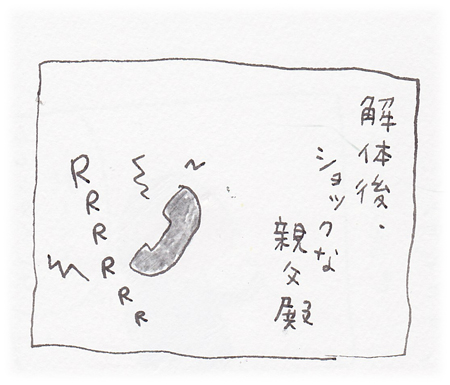 解体後、
ショックな
親父殿
RRRRRR